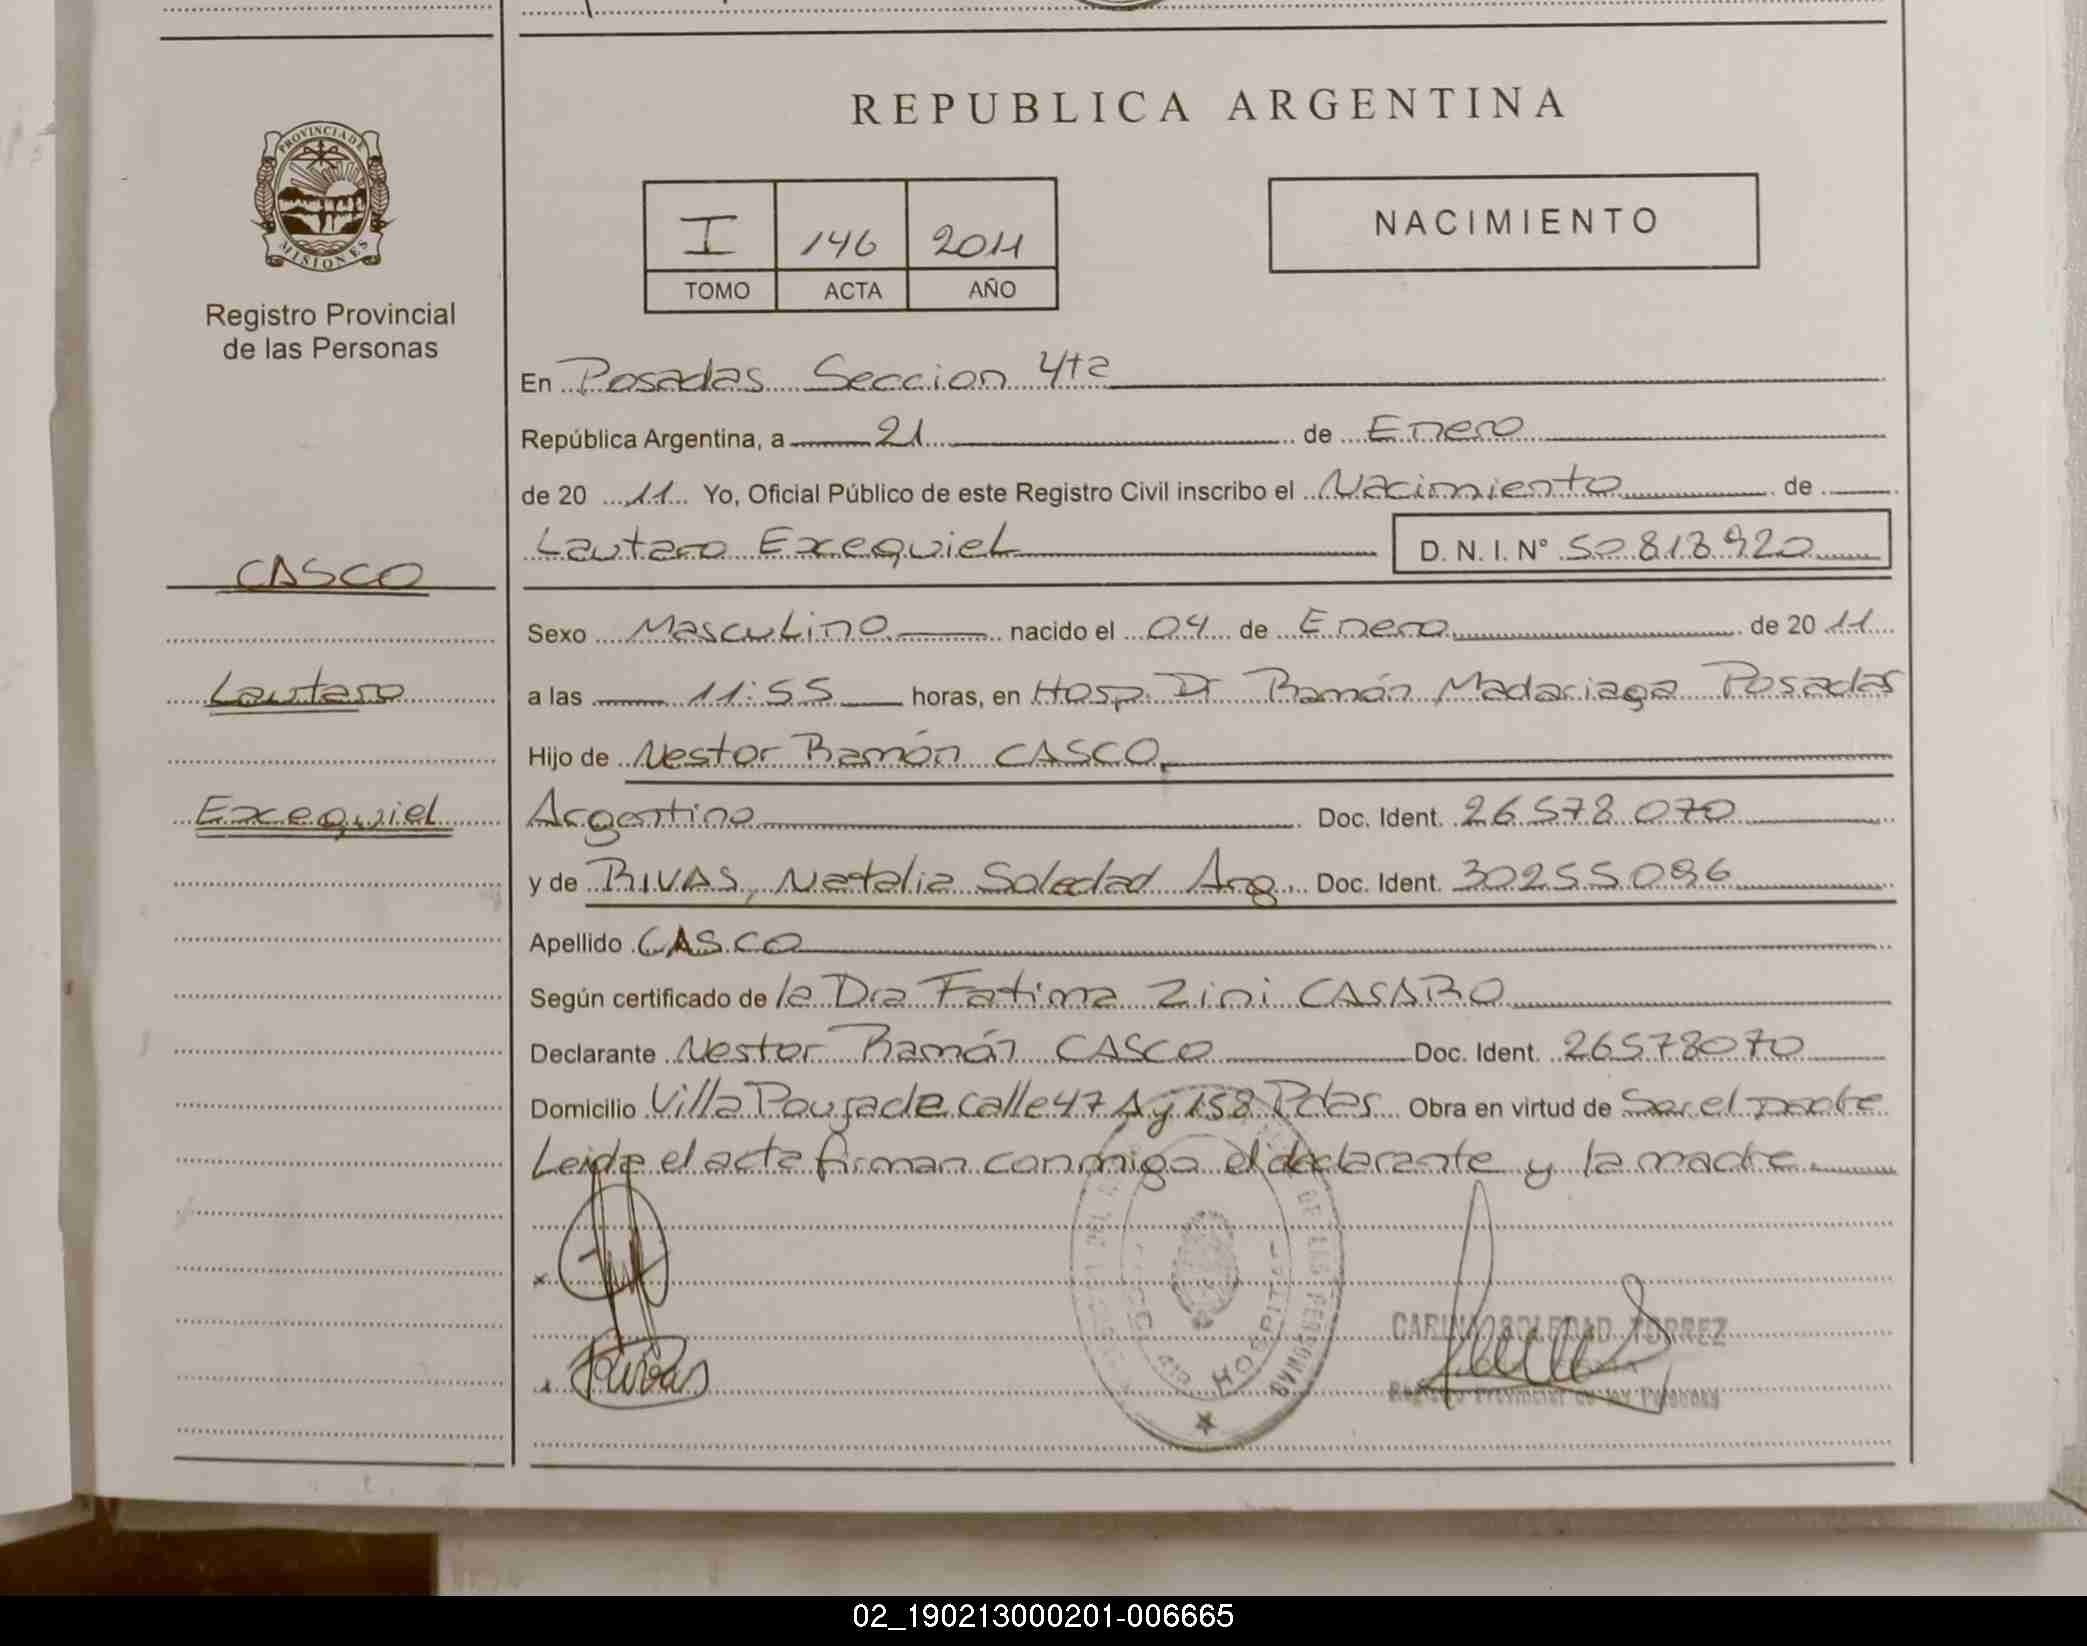 REPUBLICA ARGENTINA
PROVINCIA DE
MISIONES
Registro Provincial
de las Personas
I 146 2011
TOMO ACTA AÑO
NACIMIENTO
En Posadas Seccion 4ta
República Argentina, a 21 de Enero
de 20 11 Yo, Oficial Público de este Registro Civil inscribo el Nacimiento de
Lautaro Exequiel D. N. I. N° 50.813.920
CASCO
Sexo Masculino nacido el 04 de Enero de 20 11
Lautaro
a las 11:55 horas, en Hosp. Dr Ramón Madariaga Posadas
Hijo de Nestor Ramón CASCO,
Exequiel
Argentino Doc. Ident. 26.578.070
y de RIVAS, Natalia Soledad Arg. Doc. Ident. 30255096
Apellido CASCO
Según certificado de la Dra Fatima Zini CASARO
Declarante Nestor Ramón CASCO Doc. Ident. 26578070
Domicilio Villa Poujade calle 47 A y 158 Pdas. Obra en virtud de Ser el padre
Leida el acta firman conmigo el declarante y la madre
x
Rivas
HOSPITAL
DE LAS PERSONAS
SOLEDAD TORREZ
Registro Provincial de las Personas
02_190213000201-006665